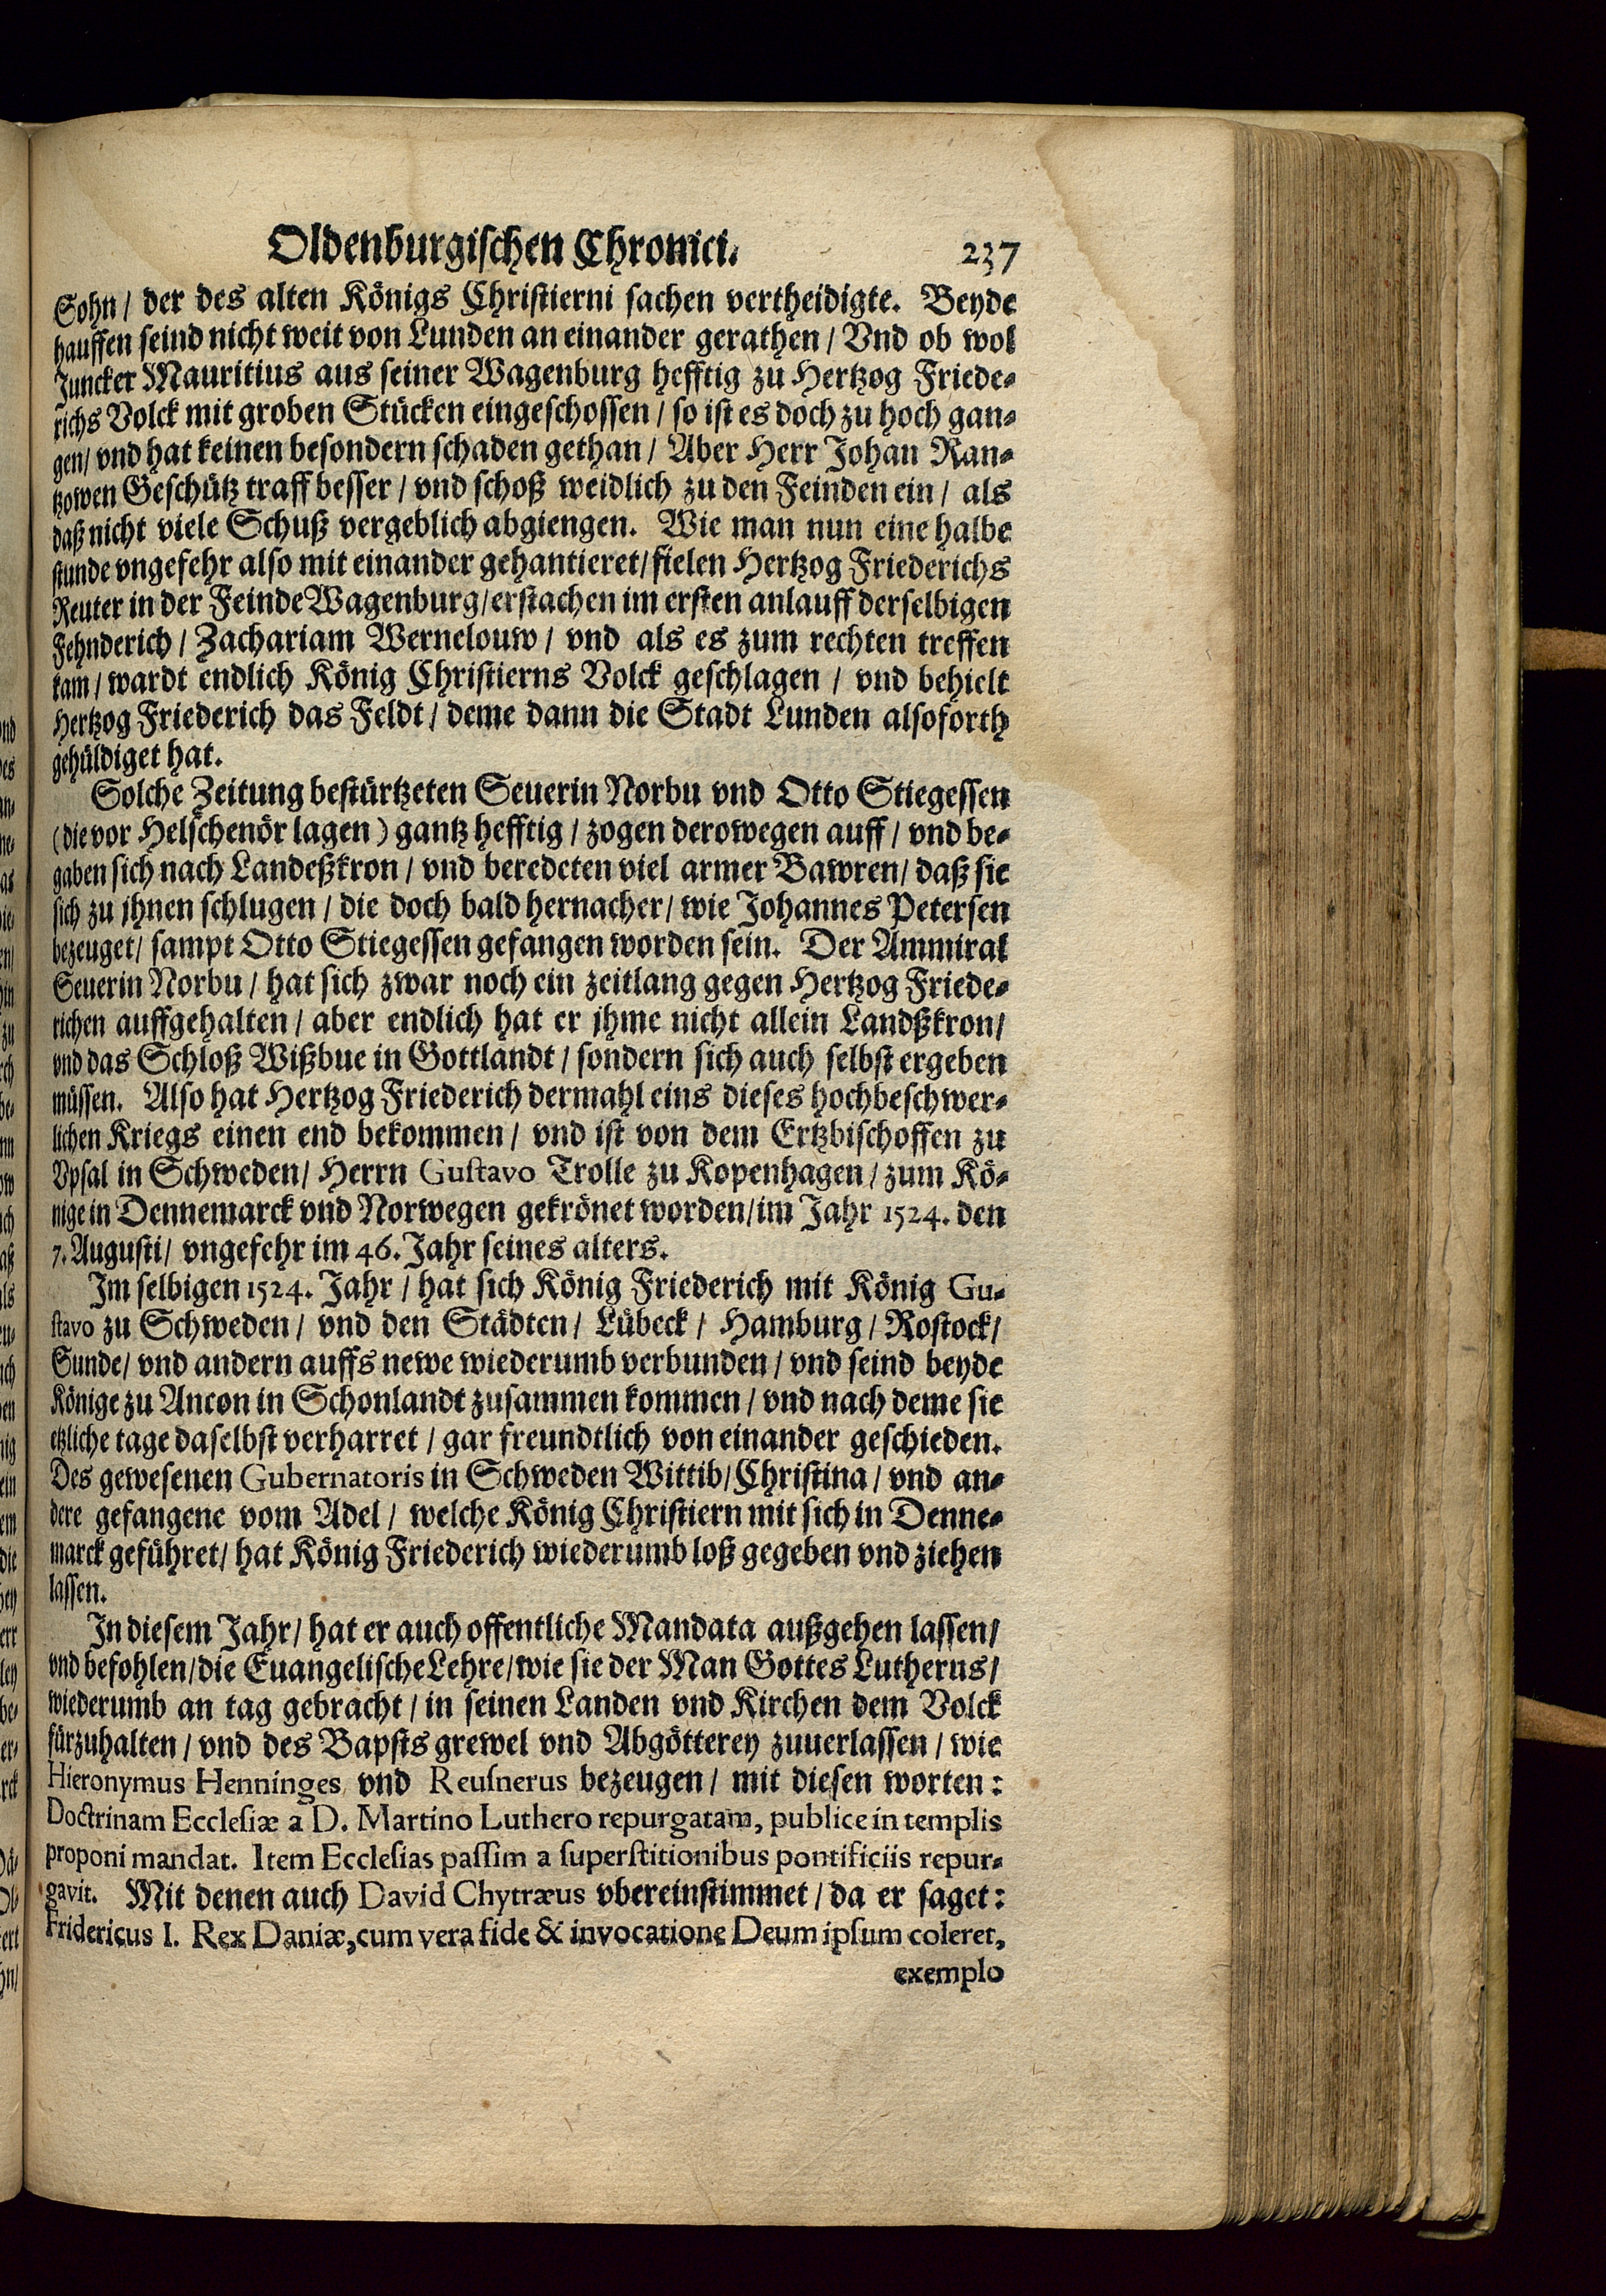 Oldenburgischen Chronici. 237
Sohn / der des alten Königs Christierni sachen vertheidigte. Beyde
hauffen seind nicht weit von Lunden an einander gerathen / Vnd ob wol
Juncker Mauritius aus seiner Wagenburg hefftig zu Hertzog Friede-
richs Volck mit groben Stücken eingeschossen / so ist es doch zu hoch gan-
gen / vnd hat keinen besondern schaden gethan / Aber Herr Johan Ran-
tzowen Geschütz traff besser / vnd schoß weidlich zu den Feinden ein / als
daß nicht viele Schuß vergeblich abgiengen. Wie man nun eine halbe
stunde vngefehr also mit einander gehantieret / fielen Hertzog Friederichs
Reuter in der Feinde Wagenburg / erstachen im ersten anlauff derselbigen
Fehnderich / Zachariam Wernelouw / vnd als es zum rechten treffen
kam / wardt endlich König Christierns Volck geschlagen / vnd behielt
Hertzog Friederich das Feldt / deme dann die Stadt Lunden alsoforth
gehüldiget hat.
Solche Zeitung bestürtzeten Seuerin Norbu vnd Otto Stiegessen
(die vor Helschenör lagen) gantz hefftig / zogen derowegen auff / vnd be-
gaben sich nach Landeßkron / vnd beredeten viel armer Bawren / daß sie
sich zu jhnen schlugen / die doch bald hernacher / wie Johannes Petersen
bezeuget / sampt Otto Stiegessen gefangen worden sein. Der Ammiral
Seuerin Norbu / hat sich zwar noch ein zeitlang gegen Hertzog Friede-
richen auffgehalten / aber endlich hat er jhme nicht allein Landßkron /
vnd das Schloß Wißbue in Gottlandt / sondern sich auch selbst ergeben
müssen. Also hat Hertzog Friederich dermahl eins dieses hochbeschwer-
lichen Kriegs einen end bekommen / vnd ist von dem Ertzbischoffen zu
Vpsal in Schweden / Herrn Gustavo Trolle zu Kopenhagen / zum Kö-
nige in Dennemarck vnd Norwegen gekrönet worden / im Jahr 1524. den
7. Augusti / vngefehr im 46. Jahr seines alters.
Im selbigen 1524. Jahr / hat sich König Friederich mit König Gu-
stavo zu Schweden / vnd den Städten / Lübeck / Hamburg / Rostock /
Sunde / vnd andern auffs newe wiederumb verbunden / vnd seind beyde
Könige zu Ancon in Schonlandt zusammen kommen / vnd nach deme sie
etzliche tage daselbst verharret / gar freundtlich von einander geschieden.
Des gewesenen Gubernatoris in Schweden Wittib / Christina / vnd an-
dere gefangene vom Adel / welche König Christiern mit sich in Denne-
marck geführet / hat König Friederich wiederumb loß gegeben vnd ziehen
lassen.
In diesem Jahr / hat er auch offentliche Mandata außgehen lassen /
vnd befohlen / die Euangelische Lehre / wie sie der Man Gottes Lutherus /
wiederumb an tag gebracht / in seinen Landen vnd Kirchen dem Volck
fürzuhalten / vnd des Bapsts grewel vnd Abgötterey zuuerlassen / wie
Hieronymus Henninges vnd Reusnerus bezeugen / mit diesen worten:
Doctrinam Ecclesiæ a D. Martino Luthero repurgatam, publice in templis
proponi mandat. Item Ecclesias passim a superstitionibus pontificiis repur-
gavit. Mit denen auch David Chytræus vbereinstimmet / da er saget:
Fridericus I. Rex Daniæ, cum vera fide & invocatione Deum ipsum coleret,
exemplo